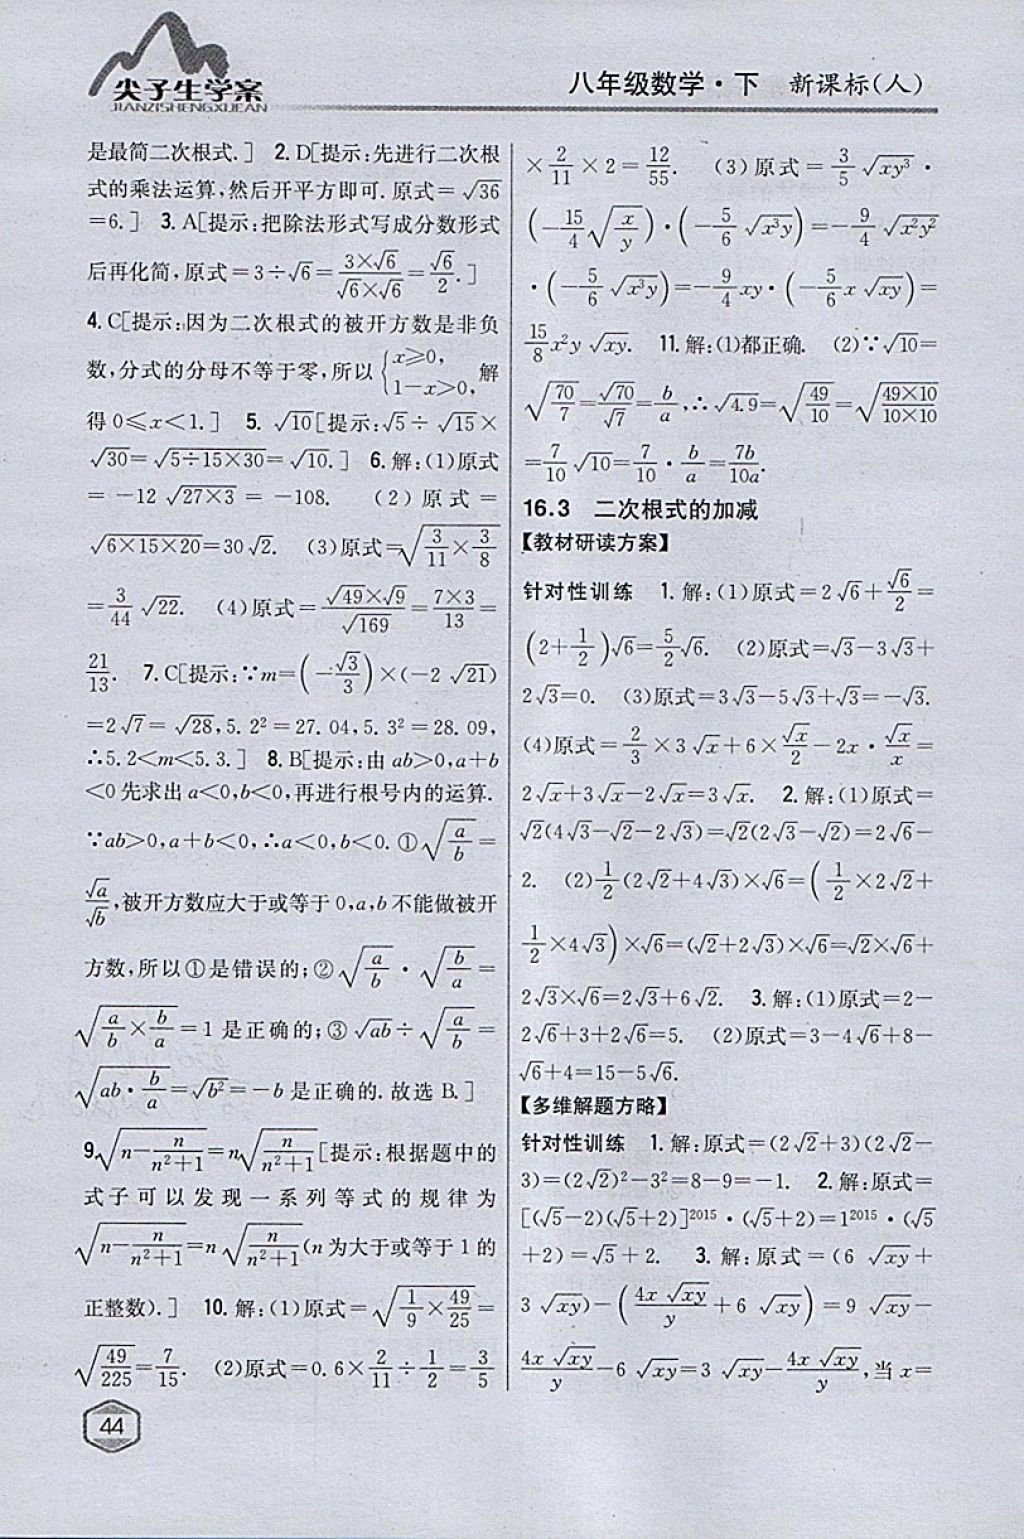 尖子生学案
JIANZISHENGXUEAN
八年级数学·下 新课标(人)
是最简二次根式.] 2. D[提示:先进行二次根
式的乘法运算,然后开平方即可. 原式=√36
=6.] 3. A[提示:把除法形式写成分数形式
后再化简,原式=3÷√6=(3×√6)/(√6×√6)=√6/2.]
4. C[提示:因为二次根式的被开方数是非负
数,分式的分母不等于零,所以{x≥0, 1-x>0, 解
得0≤x<1.] 5. √10[提示:√5÷√15×
√30=√(5÷15×30)=√10.] 6. 解:(1)原式
=-12√(27×3)=-108. (2)原式=
√(6×15×20)=30√2. (3)原式=√(3/11×3/8)
=3/44 √22. (4)原式=(√49×√9)/√169=(7×3)/13=
21/13. 7. C[提示:∵m=(-√3/3)×(-2√21)
=2√7=√28,5.2²=27.04,5.3²=28.09,
∴5.2<m<5.3.] 8. B[提示:由ab>0,a+b
<0先求出a<0,b<0,再进行根号内的运算.
∵ab>0,a+b<0,∴a<0,b<0. ①√(a/b)=
√a/√b,被开方数应大于或等于0,a,b不能做被开
方数,所以①是错误的;②√(a/b)·√(b/a)=
√(a/b×b/a)=1是正确的;③√ab÷√(a/b)=
√(ab·b/a)=√b²=-b是正确的. 故选B.]
9. √(n-n/(n²+1))=n√(n/(n²+1))[提示:根据题中的
式子可以发现一系列等式的规律为
√(n-n/(n²+1))=n√(n/(n²+1))(n为大于或等于1的
正整数).] 10. 解:(1)原式=√(1/9×49/25)=
√(49/225)=7/15. (2)原式=0.6×2/11÷1/2=3/5
×2/11×2=12/55. (3)原式=3/5 √(xy³)·
(-15/4 √(x/y))·(-5/6 √(x³y))=-9/4 √(x²y²)
·(-5/6 √(x³y))=-9/4 xy·(-5/6 x√xy)=
15/8 x²y√xy. 11. 解:(1)都正确. (2)∵√10=
√(70/7)=√70/√7=b/a,∴√4.9=√(49/10)=√((49×10)/(10×10))
=7/10 √10=7/10·b/a=7b/10a.
16.3 二次根式的加减
【教材研读方案】
针对性训练 1. 解:(1)原式=2√6+√6/2=
(2+1/2)√6=5/2 √6. (2)原式=√3-3√3+
2√3=0. (3)原式=3√3-5√3+√3=-√3.
(4)原式=2/3×3√x+6×√x/2-2x·√x/x=
2√x+3√x-2√x=3√x. 2. 解:(1)原式=
√2(4√3-√2-2√3)=√2(2√3-√2)=2√6-
2. (2)1/2(2√2+4√3)×√6=(1/2×2√2+
1/2×4√3)×√6=(√2+2√3)×√6=√2×√6+
2√3×√6=2√3+6√2. 3. 解:(1)原式=2-
2√6+3+2√6=5. (2)原式=3-4√6+8-
√6+4=15-5√6.
【多维解题方略】
针对性训练 1. 解:原式=(2√2+3)(2√2-
3)=(2√2)²-3²=8-9=-1. 2. 解:原式=
[(√5-2)(√5+2)]²⁰¹⁵·(√5+2)=1²⁰¹⁵·(√5
+2)=√5+2. 3. 解:原式=(6√xy+
3√xy)-(4x√xy/y+6√xy)=9√xy-
4x√xy/y-6√xy=3√xy-4x√xy/y,当x=
44